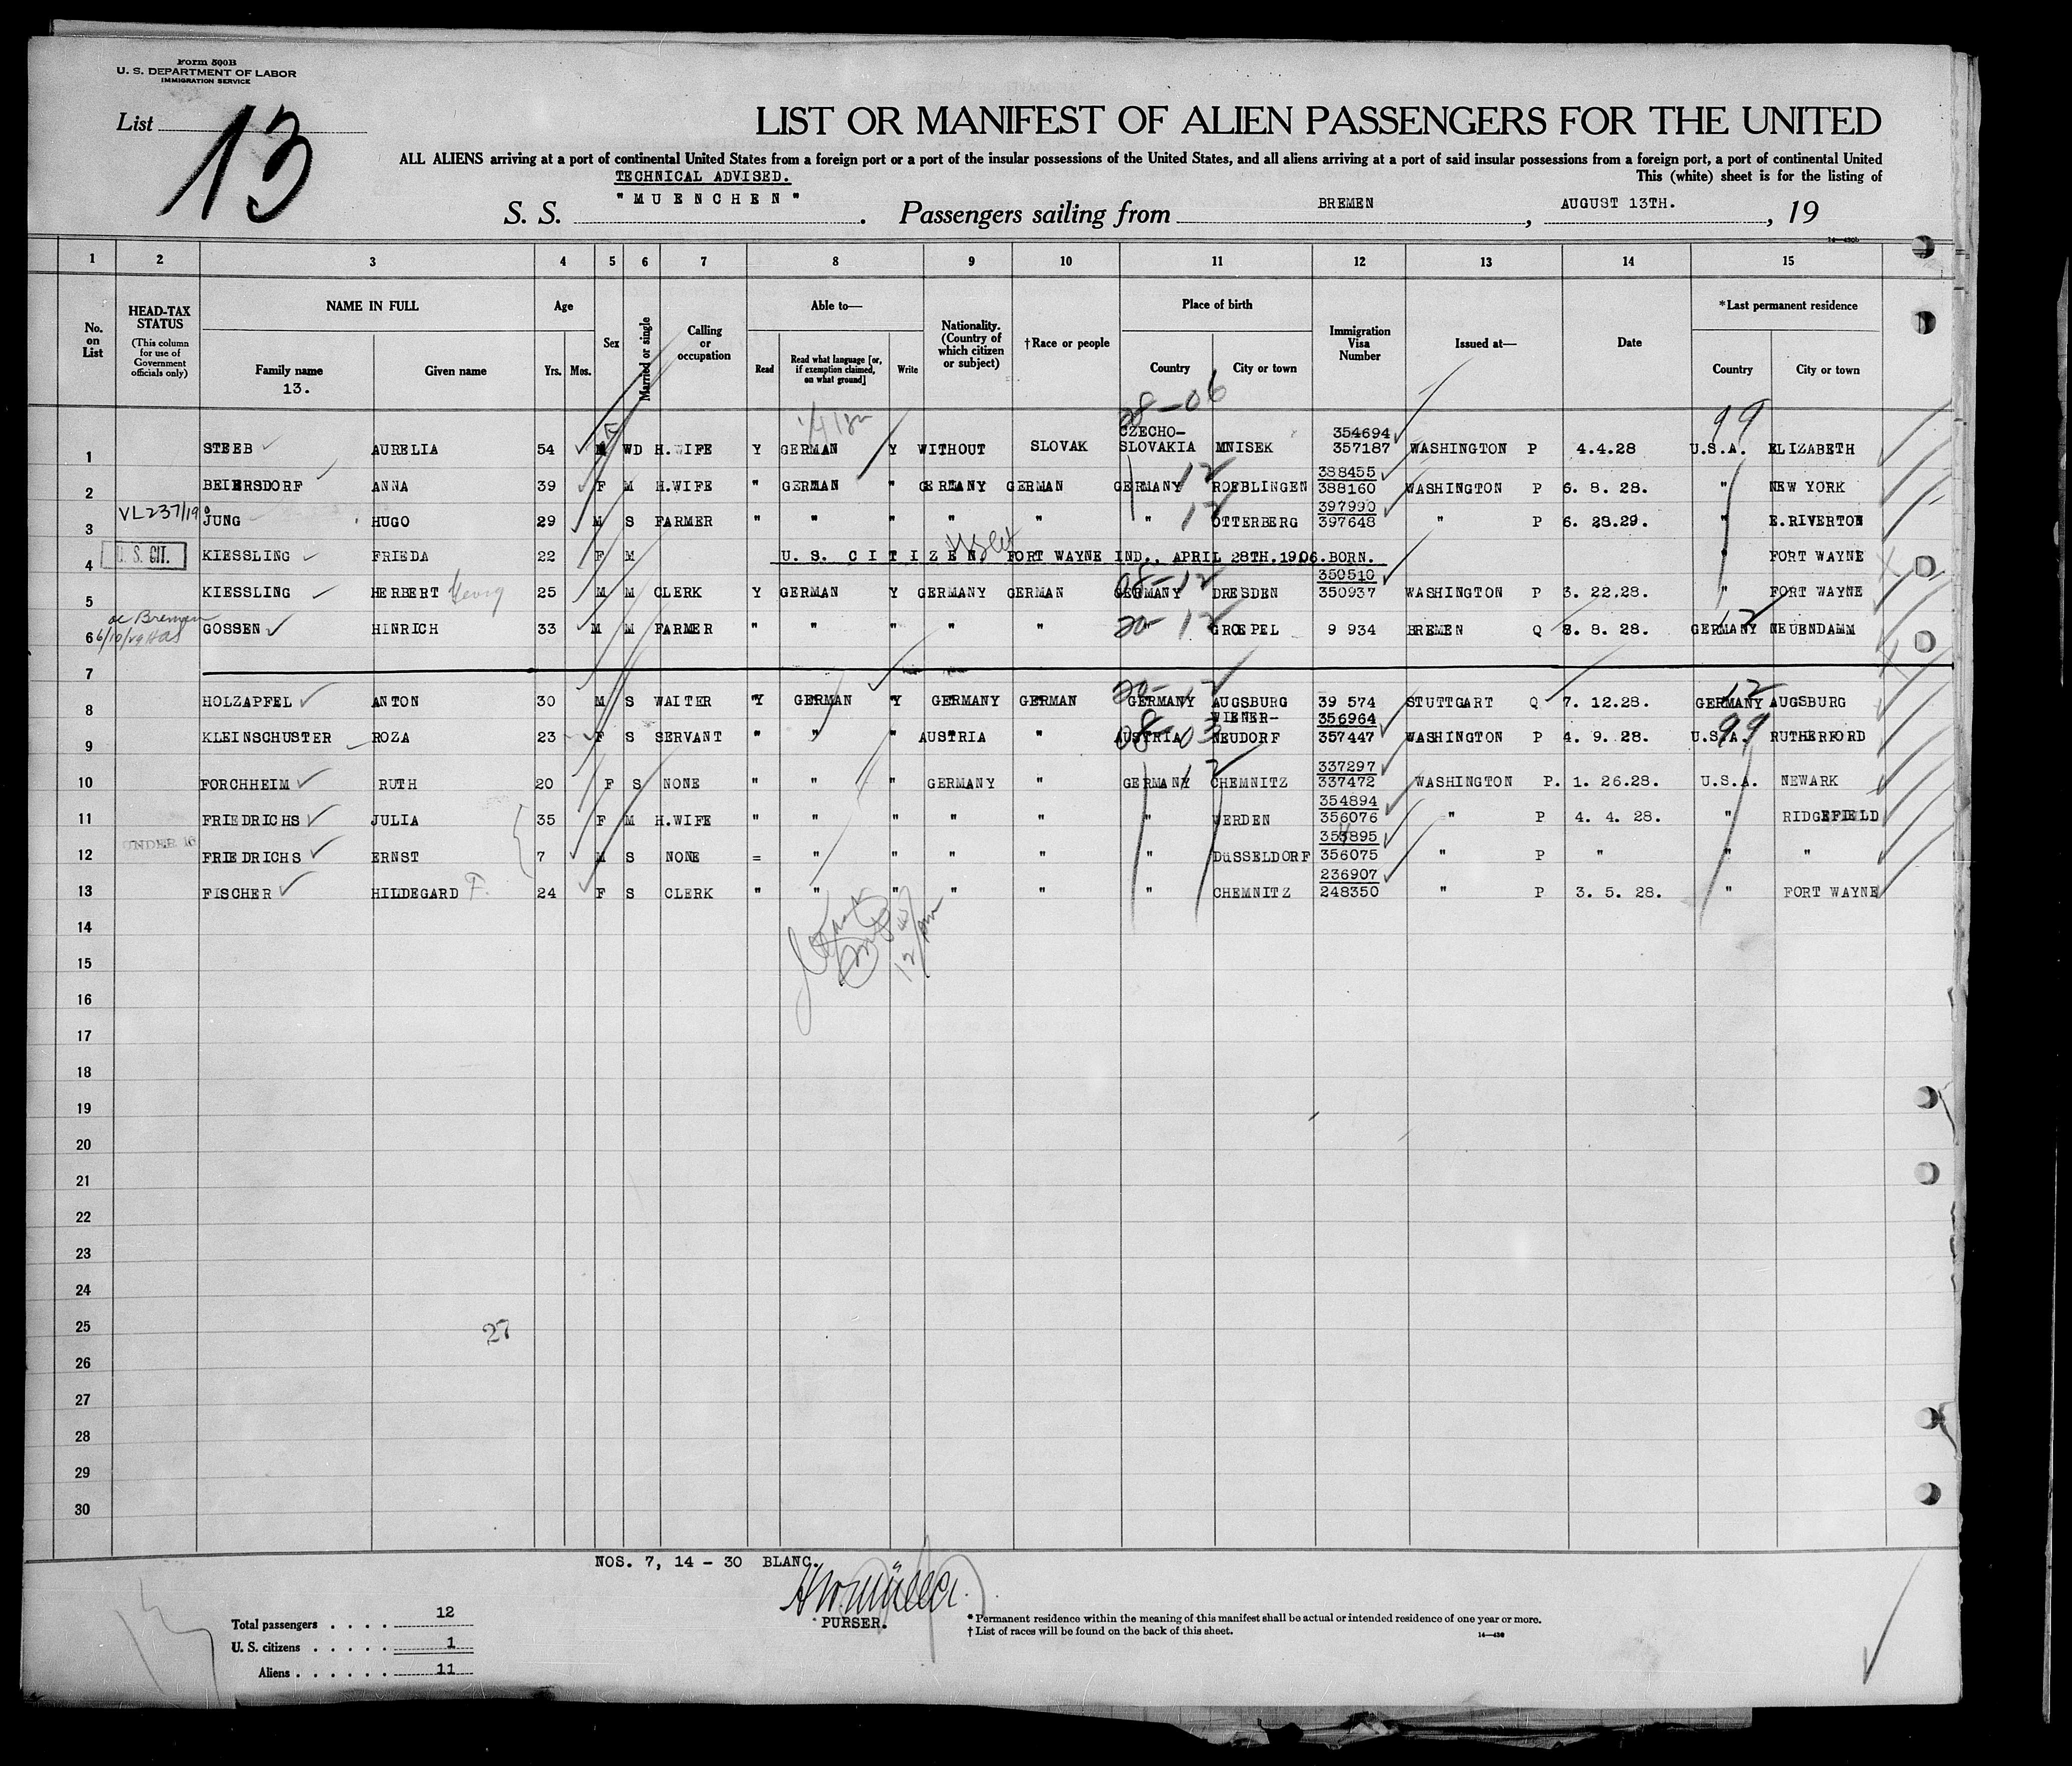 Form 500B
U. S. DEPARTMENT OF LABOR
IMMIGRATION SERVICE
List 13
LIST OR MANIFEST OF ALIEN PASSENGERS FOR THE UNITED
ALL ALIENS arriving at a port of continental United States from a foreign port or a port of the insular possessions of the United States, and all aliens arriving at a port of said insular possessions from a foreign port, a port of continental United
TECHNICAL ADVISED. This (white) sheet is for the listing of
S. S. "MUENCHEN". Passengers sailing from BREMEN, AUGUST 13TH., 19
1 2 3 4 5 6 7 8 9 10 11 12 13 14 15
No. on List
HEAD-TAX STATUS (This column for use of Government officials only)
NAME IN FULL
Family name 13.
Given name
Age
Yrs. Mos.
Sex
Married or single
Calling or occupation
Able to—
Read
Read what language [or, if exemption claimed, on what ground]
Write
Nationality. (Country of which citizen or subject)
†Race or people
Place of birth
Country City or town
Immigration Visa Number
Issued at—
Date
*Last permanent residence
Country City or town
28-06 99
CZECHO- 354694
1 STEEB AURELIA 54 F WD H.WIFE Y GERMAN Y WITHOUT SLOVAK SLOVAKIA MNISEK 357187 WASHINGTON P 4.4.28 U.S.A. ELIZABETH
12 388455
2 BEIERSDORF ANNA 39 F M H.WIFE " GERMAN " GERMANY GERMAN GERMANY ROEBLINGEN 388160 WASHINGTON P 6. 8. 28. " NEW YORK
12 397990
3 JUNG HUGO 29 M S FARMER " " " " " " OTTERBERG 397648 " P 6. 28.29. " E.RIVERTON
4 U. S. CIT. KIESSLING FRIEDA 22 F M U.S. CITIZEN, FORT WAYNE IND., APRIL 28TH.1906.BORN. " FORT WAYNE
08-12 350510
5 KIESSLING HERBERT Georg 25 M M CLERK Y GERMAN Y GERMANY GERMAN GERMANY DRESDEN 350937 WASHINGTON P 3. 22.28. " FORT WAYNE
20-12 12
6 GOSSEN HINRICH 33 M M FARMER " " " " " GROEPEL 9 934 BREMEN Q 8. 8. 28. GERMANY NEUENDAMM
7
20-12 12
8 HOLZAPFEL ANTON 30 M S WAITER "Y GERMAN "Y GERMANY GERMAN GERMANY AUGSBURG 39 574 STUTTGART Q 7. 12.28. GERMANY AUGSBURG
08-03 WIENER- 356964 99
9 KLEINSCHUSTER ROZA 23 F S SERVANT " " " AUSTRIA " AUSTRIA NEUDORF 357447 WASHINGTON P 4. 9. 28. U.S.A. RUTHERFORD
12 337297
10 FORCHHEIM RUTH 20 F S NONE " " " GERMANY " GERMANY CHEMNITZ 337472 WASHINGTON P. 1. 26.28. U.S.A. NEWARK
354894
11 FRIEDRICHS JULIA 35 F M H.WIFE " " " " " " VERDEN 356076 " P 4. 4. 28. " RIDGEFIELD
12 UNDER 16 FRIEDRICHS ERNST 7 M S NONE = " " " " " DüSSELDORF 356075 " P " " "
236907
13 FISCHER HILDEGARD F. 24 F S CLERK " " " " " " CHEMNITZ 248350 " P 3. 5. 28. " FORT WAYNE
14
15
16
17
18
19
20
21
22
23
24
25
27
26
27
28
29
30
NOS. 7, 14 - 30 BLANC.
PURSER.
Total passengers . . . . 12
U. S. citizens . . . . . 1
Aliens . . . . . . 11
* Permanent residence within the meaning of this manifest shall be actual or intended residence of one year or more.
† List of races will be found on the back of this sheet.